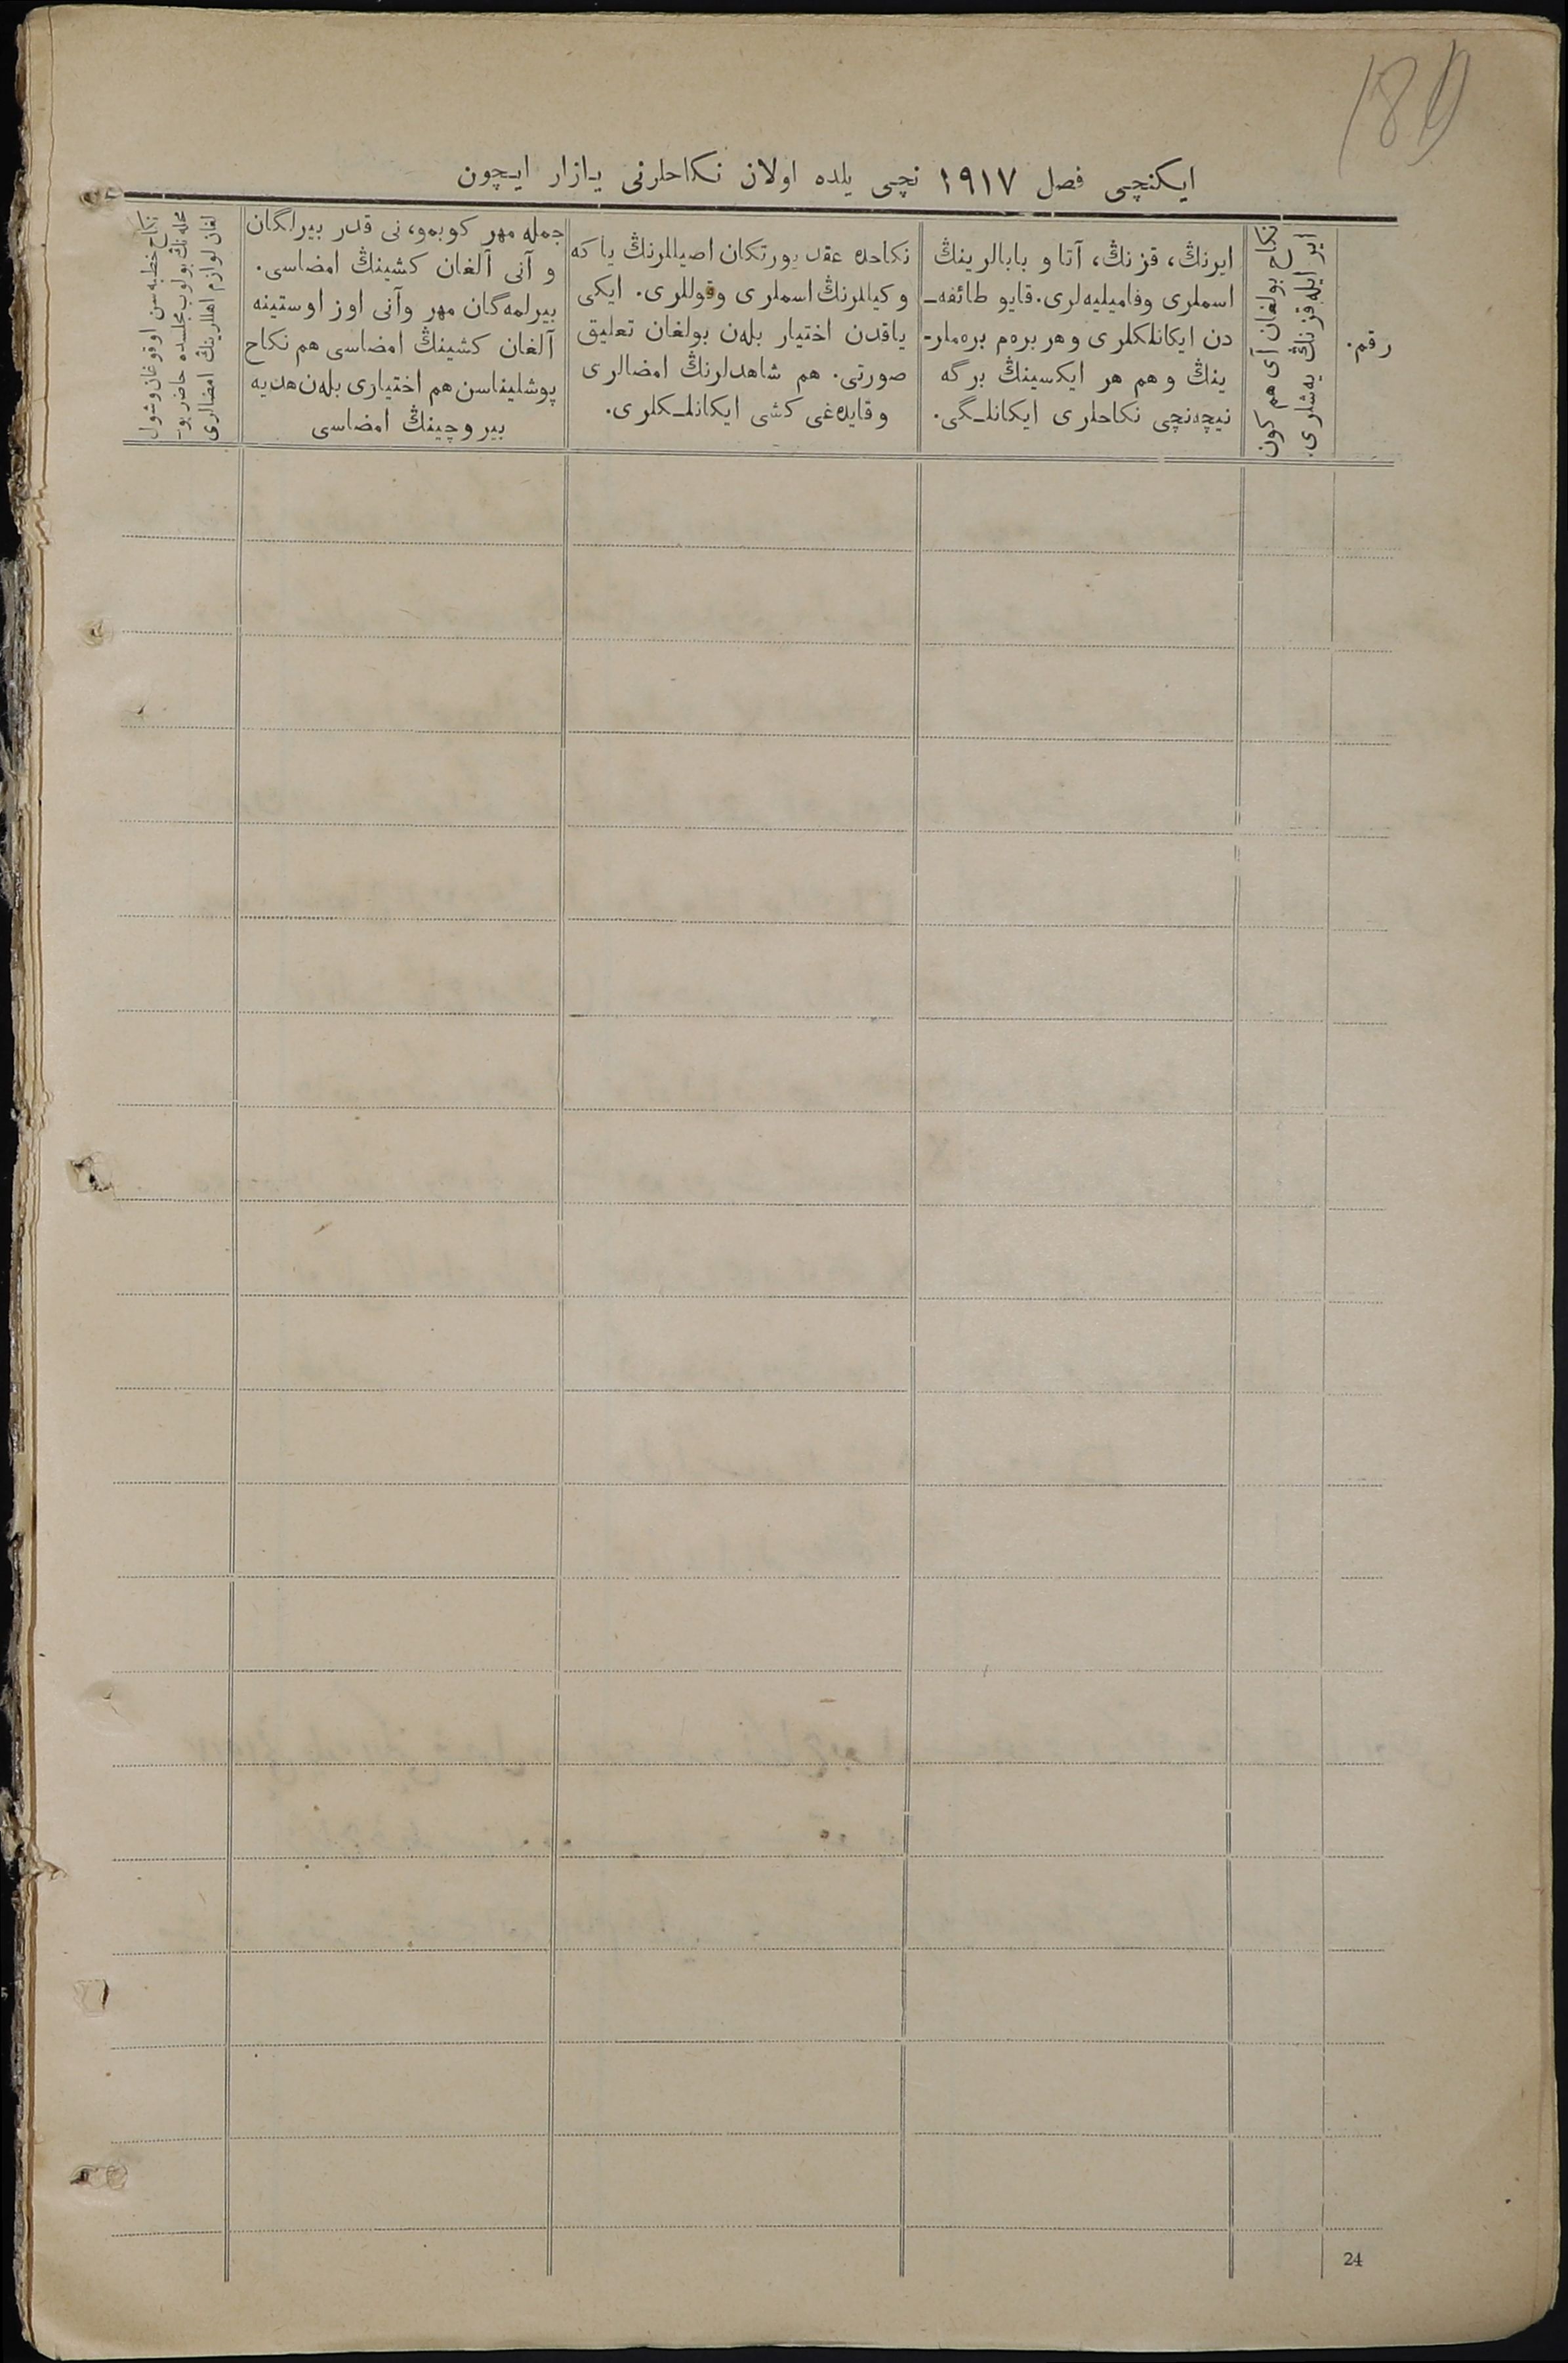 180
ایکنچی فصل ١٩١٧ نچی یلده اولان نکاحلرنی یازار ایچون
رقم.
نکاح بولغان آی هم کون
ایر ایله قزنڭ یهشلری.
ایرنڭ، قزنڭ، آتا و بابالرینڭ
اسملری وفامیلیهلری. قایو طائفه‌ـ
دن ایکانلکلری و هر برهم برهملر‌ـ
ینڭ و هم هر ایکسینڭ برگه
نیچهنچی نکاحلری ایکانلـگی.
نکاحده عقد یورتکان اصیللرنڭ یا که
وکیللرنڭ اسملری وقوللری. ایکی
یاقدن اختیار بلهن بولغان تعلیق
صورتی. هم شاهدلرنڭ امضالری
وقایدهغی کشی ایکانلـکلری.
جمله مهر کوبمو، نی قدر بیرلگان
و آنی آلغان کشینڭ امضاسی.
بیرلمهگان مهر وآنی اوز اوستینه
آلغان کشینڭ امضاسی هم نکاح
پوشلیناسن هم اختیاری بلهن هدیه
بیروچینڭ امضاسی
نکاح خطبهسن اوقوغان وشول
محلهنڭ بولوب مجلسده حاضر بو‌ـ
لغان لوازم اهللرینڭ امضالری
24